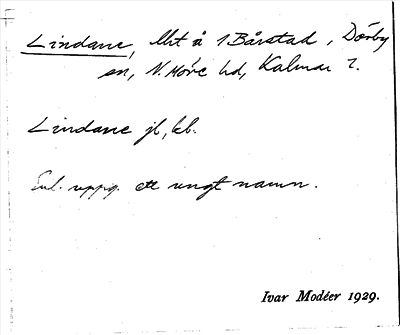 Lindane, lht å 1 Bårstad, Dörby
sn, N. Möre hd, Kalmar l.
Lindane jb, kb.
Enl. uppg. ett ungt namn.
Ivar Modéer 1929.